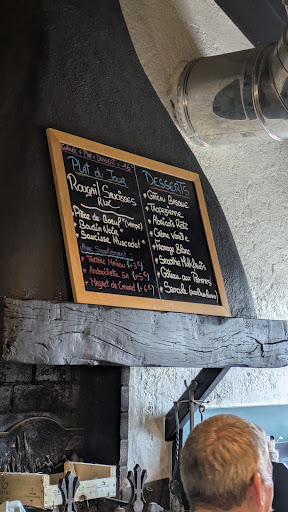 Plat du Jour
Rougail Saucisses
Riz
Pièce de Boeuf
Boudin Noir
Saucisse Muscadet
Avec Supplément
Tartare Maison
Andouillette 5A
Magret de Canard
DESSERTS
Gâteau Basque
Tropézienne
Abricots Rôtis
Crème Vanille
Fromage Blanc
Smoothie Multifruits
Gâteau aux Pommes